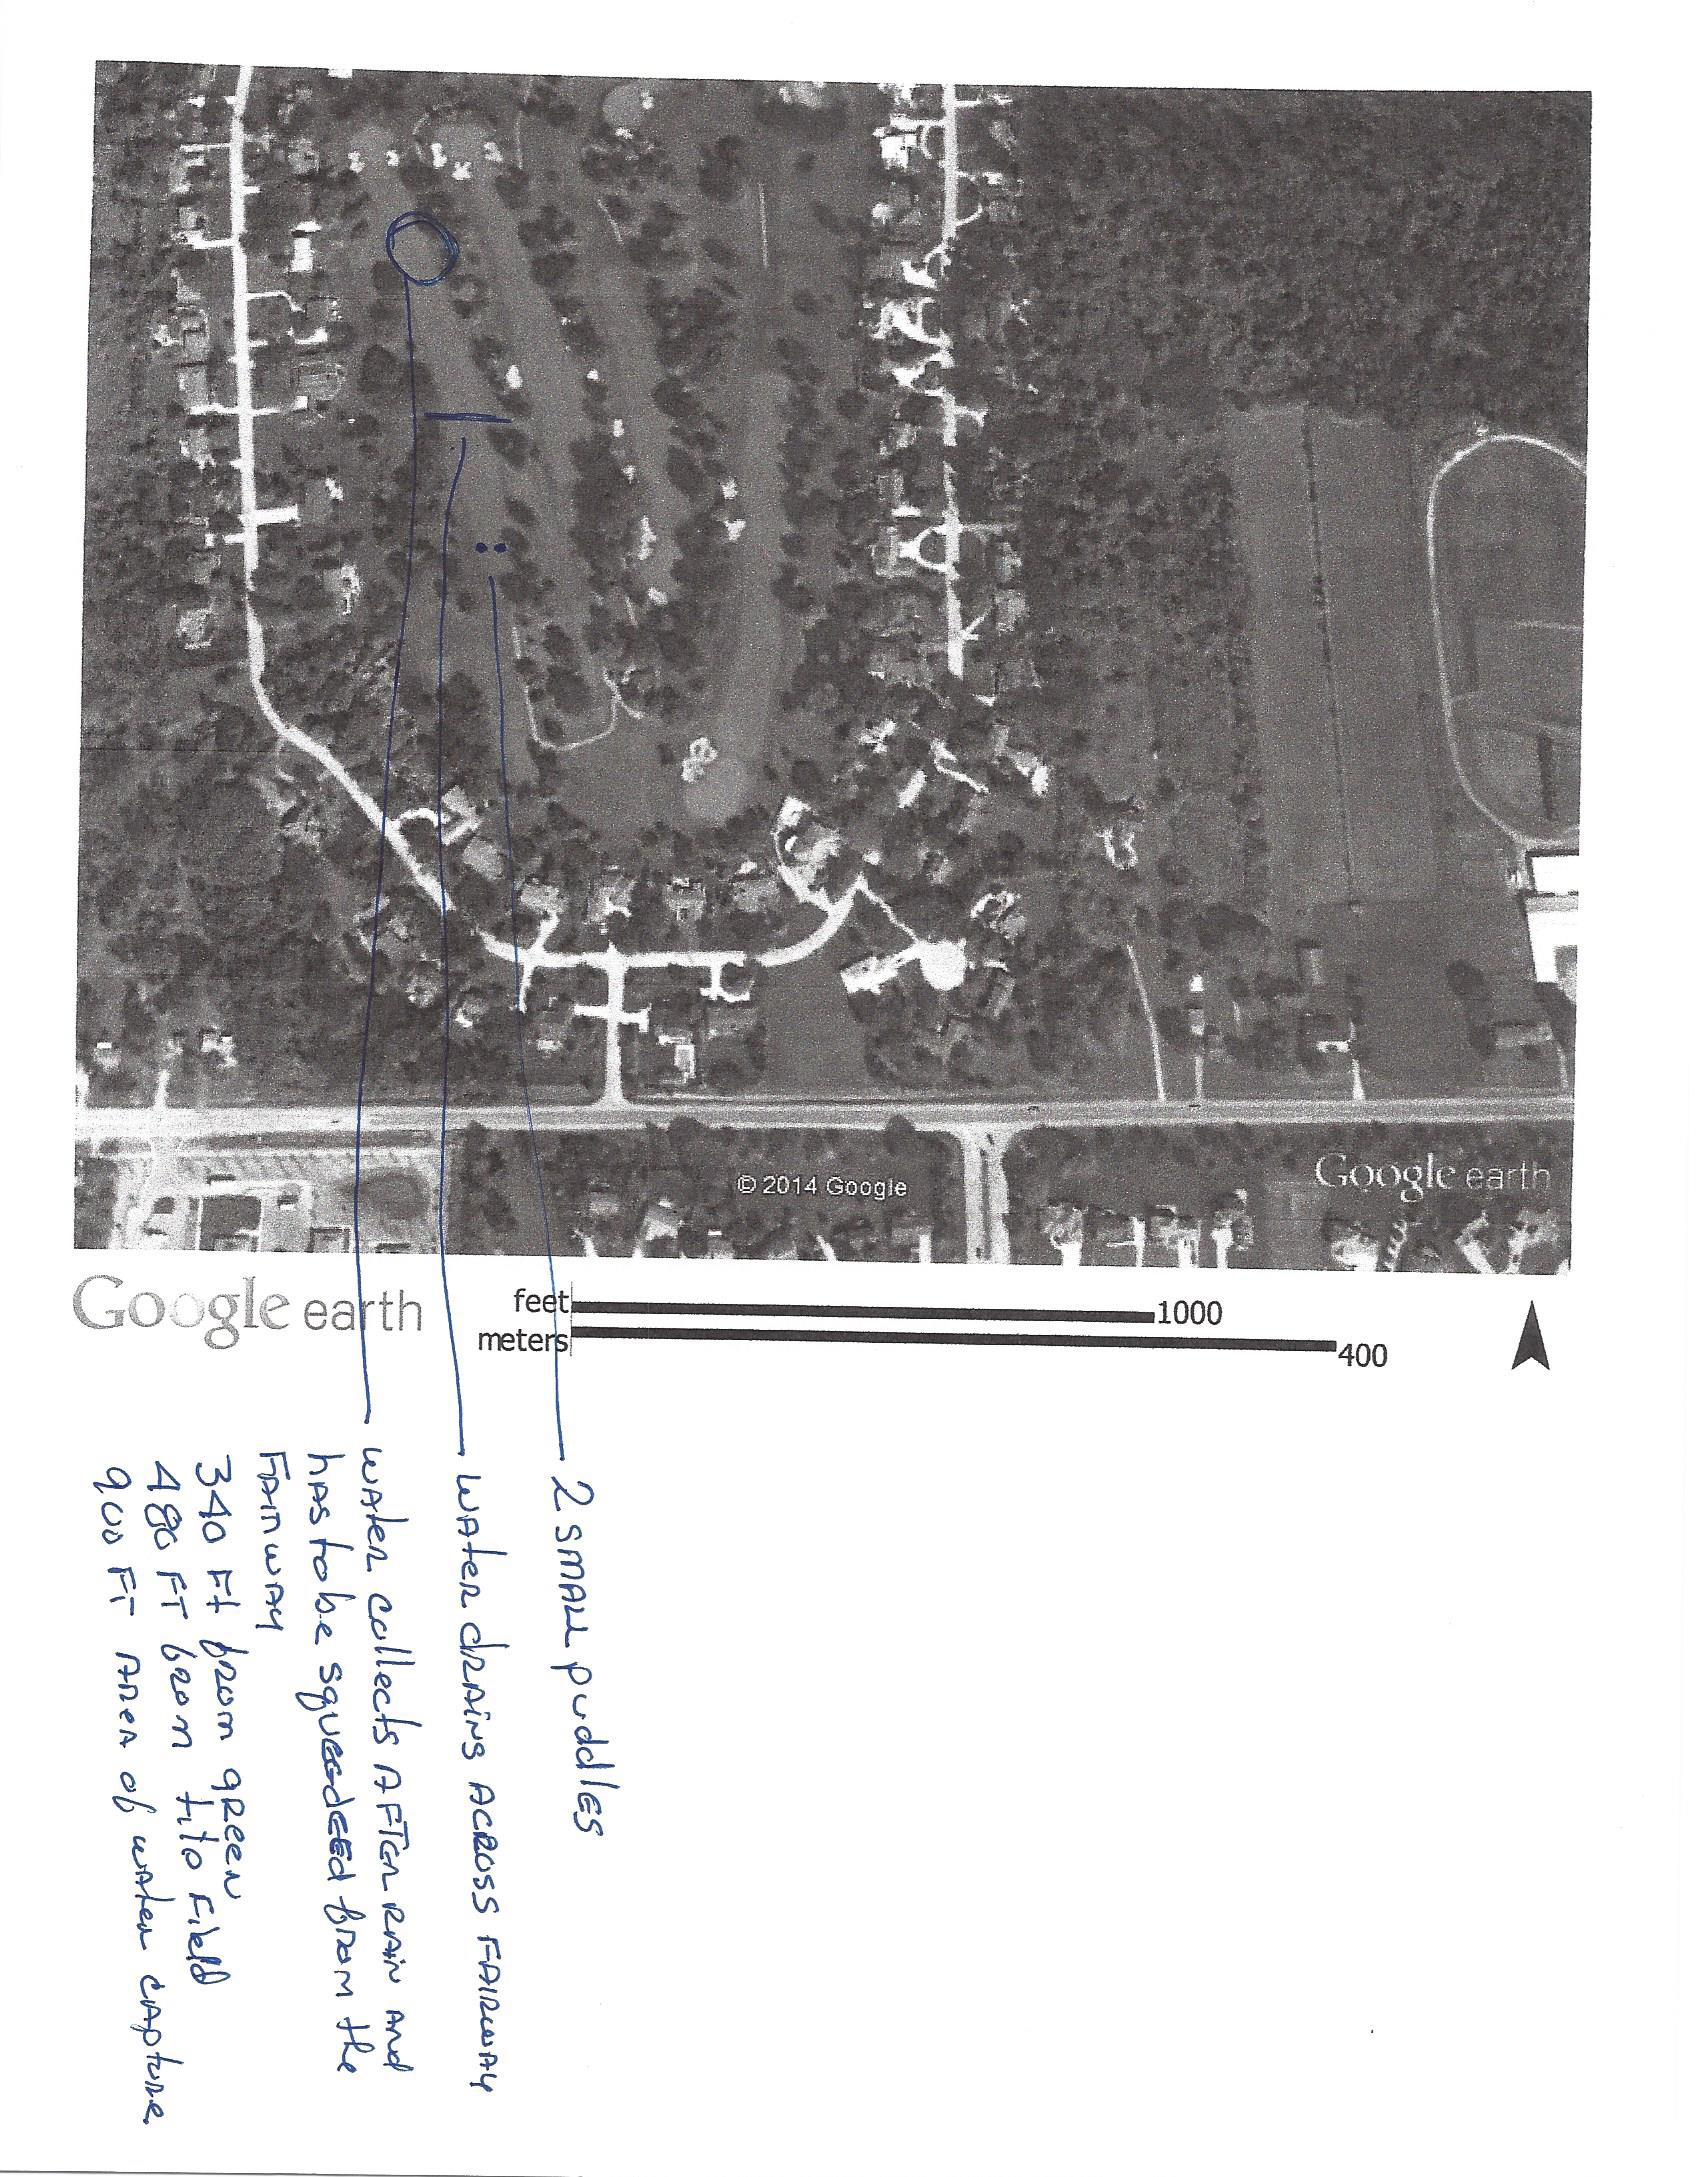 © 2014 Google
Google earth
Google earth
feet 1000
meters 400
2 SMALL puddlES
WATER dRAINS ACROSS FAIRWAY
WATER collects AFTER RAIN and
hAS to be squEEdEEd from the
FAIRWAY
340 Ft from greEN
480 FT from tilo FiElD
900 FT AREA of water cApture